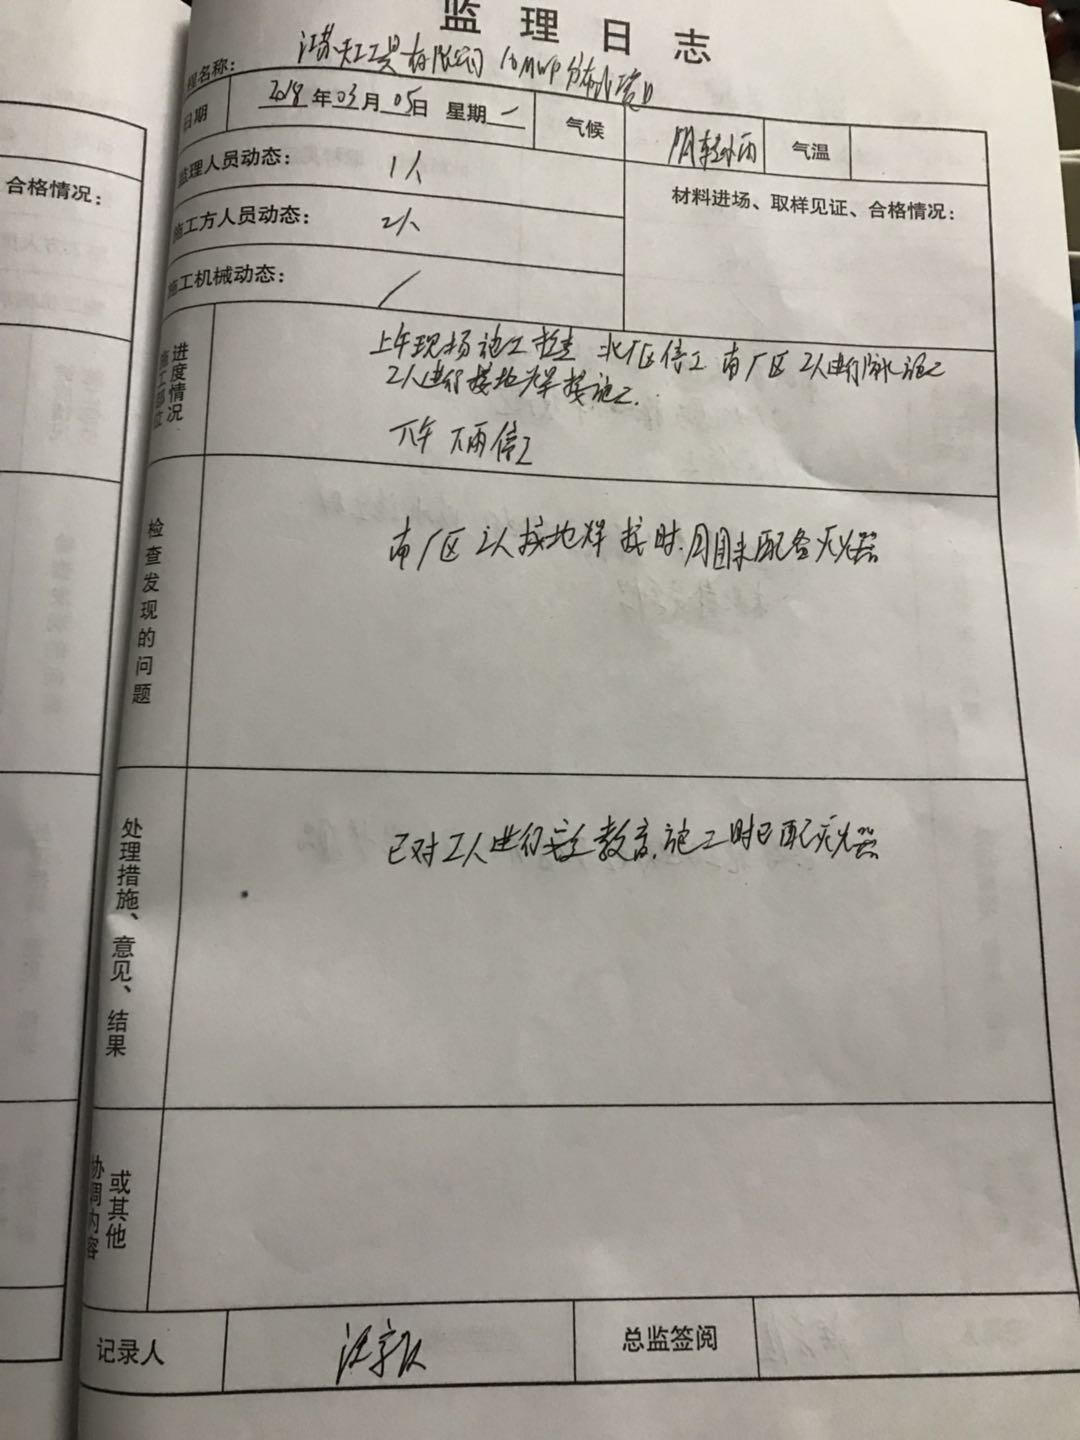 监理日志
程名称: 江苏天工工具有限公司 10MWP 分布式项目
日期 2018年03月05日 星期一 气候 阴转小雨 气温
监理人员动态: 1人
材料进场、取样见证、合格情况:
施工方人员动态: 2人
施工机械动态: /
施工部位
进度情况
上午现场施工检查 北厂区停工 南厂区 2人进行 施工
2人进行接地焊接施工.
下午 下雨停工
检查发现的问题
南厂区 工人接地焊接时.周围未配备灭火器
处理措施、意见、结果
已对工人进行安全教育.施工时已配灭火器
协调内容
或其他
记录人 汪 总监签阅
合格情况: